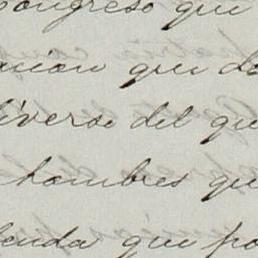 ongreso que
acion que de
diverso del qu
hombres qu
enda que po